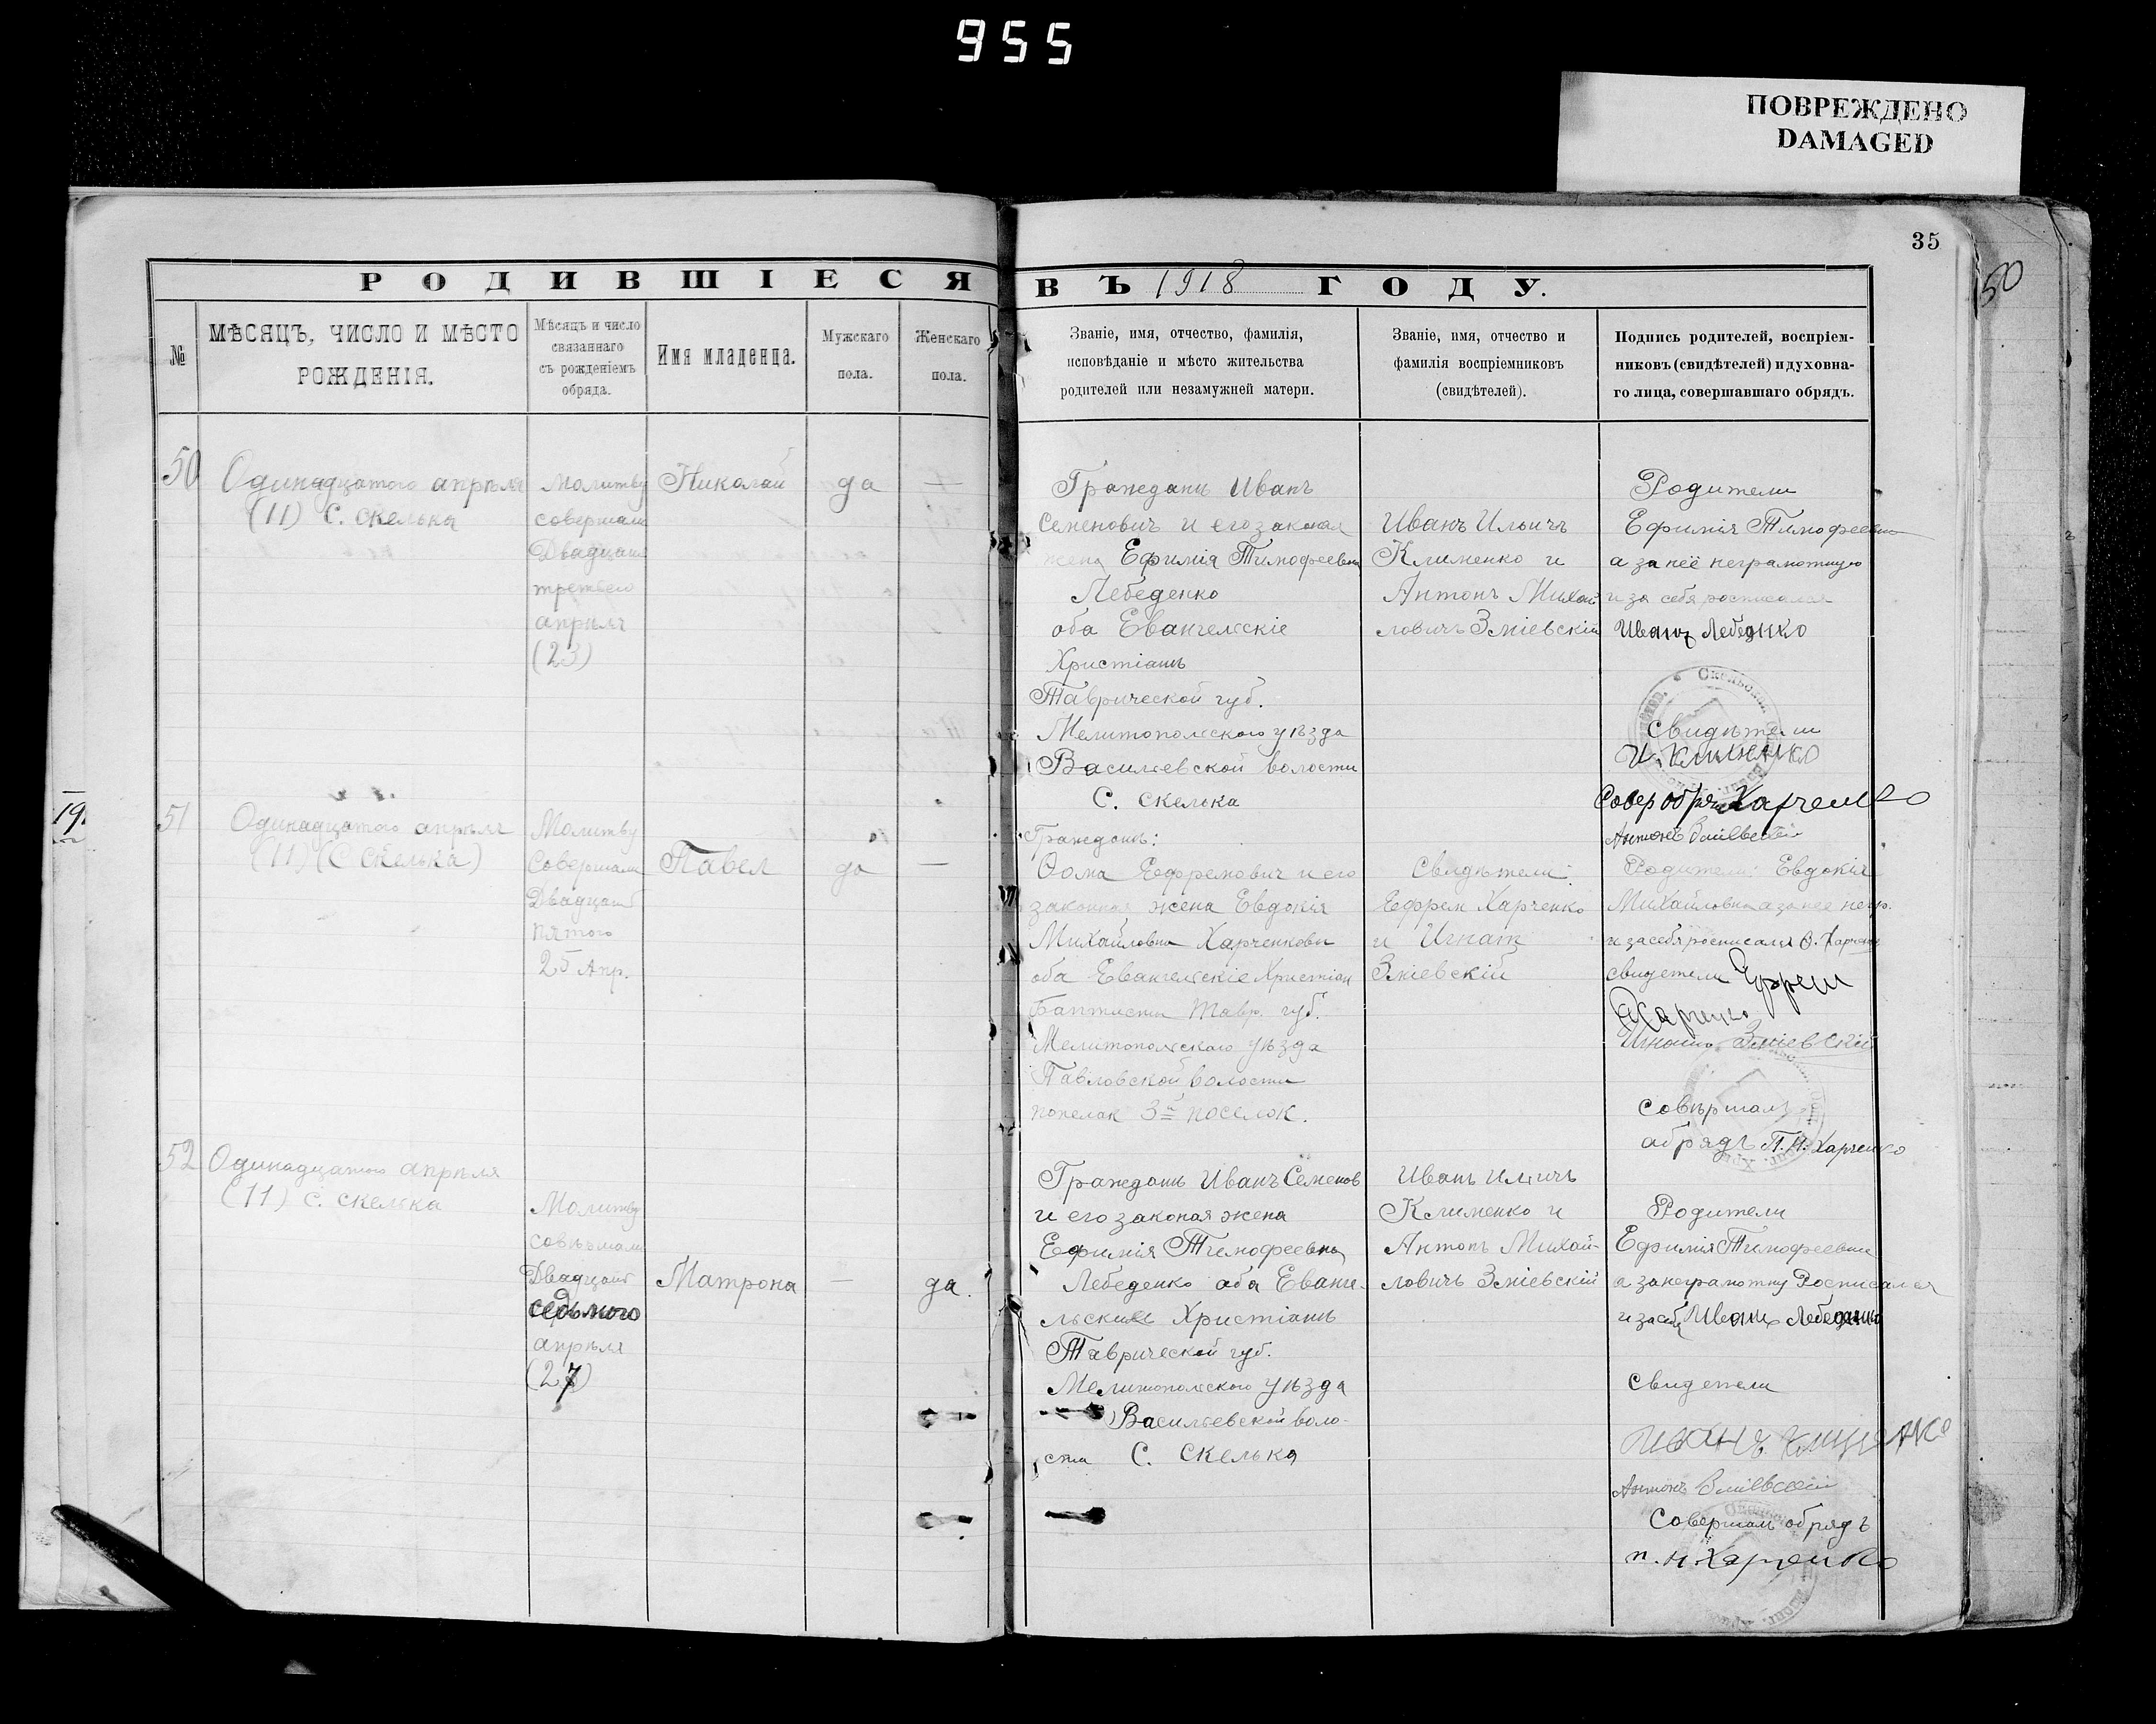 955
ПОВРЕЖДЕНО
DAMAGED
35
50
19
РОДИВШІЕСЯ ВЪ 1918 ГОДУ.
№
МѢСЯЦЪ, ЧИСЛО И МѢСТО
РОЖДЕНІЯ.
Мѣсяцъ и число
связаннаго
съ рожденіемъ
обряда.
Имя младенца.
Мужскаго
пола.
Женскаго
пола.
Званіе, имя, отчество, фамилія,
исповѣданіе и мѣсто жительства
родителей или незамужней матери.
Званіе, имя, отчество и
фамилія воспріемниковъ
(свидѣтелей).
Подпись родителей, воспріем-
никовъ (свидѣтелей) и духовна-
го лица, совершавшаго обрядъ.
50
Одинадцатого апрѣля
(11) С. Скелька
Молитву
совершали
Двадцать
третьего
апрѣля
(23)
Николай
да
—
Граждани Иванъ
Семеновичъ и его законая
жена Ефимія Тимофеевна
Лебеденко
оба Евангелскіе
Христіани
Таврической губ.
Мелитополского уѣзда
Василевской волости
С. Скелка
Иванъ Ильичъ
Клименко и
Антонъ Михай
ловичъ Зміевскій
Родители
Ефимія Тимофеевна
а за неё неграмотную
и за себя росписался
Иванъ Лебеденко
Свидѣтели
И. Клименко
Совер обряд Харченко
Антонъ Зміевскій
51
Одинадцатого апрѣля
(11) (С Скелька)
Молитву
Совершали
Двадцать
пятого
25 Апр.
Павел
да
—
Граждани:
Ѳома Ефремович и его
законная жена Евдокія
Михайловна Харченковы
оба Евангелскіе Христіан
Баптисты Тавр. губ.
Мелитополскаго уѣзда
Павловской волости
3й поселок.
Свидѣтели:
Ефрем Харченко
и Игнат
Зміевскій
Родители: Евдокія
Михайловна а за нее негр.
и за себя росписался Ѳ. Харченко
свидетели Ефрем
Харченко
Игнатъ Зміевскій
совѣршал
абрядъ П. Н. Харченко
52
Одинадцатого апрѣля
(11) С. Скелька
Молитву
совѣршали
Двадцать
седьмого
апрѣля
(27)
Матрона
—
да.
Граждани Иванъ Семенов
и его законая жена
Ефимія Тимофеевна
Лебеденко аба Еванге-
льские Христіани
Таврической губ.
Мелитополского уѣзда
Василевской воло-
сти С. Скелька
Иванъ Иличъ
Клименко и
Антонъ Михай-
ловичъ Зміевскій
Родители
Ефимія Тимофеевна
а за неграмотну Росписался
и за себя Иванъ Лебеденко
свидетели
Иванъ Клименко
Антонъ Зміевскій
Совершал обрядъ
П. Н. Харченко